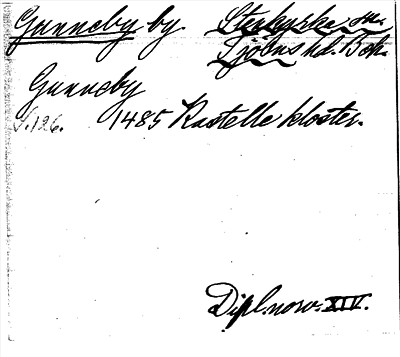 Gunneby by. Stenkyrka sn.
Tjörns hd. Boh.
Gunneby
S. 126. 1485 Kastelle kloster.
Dipl. norv. XIV.